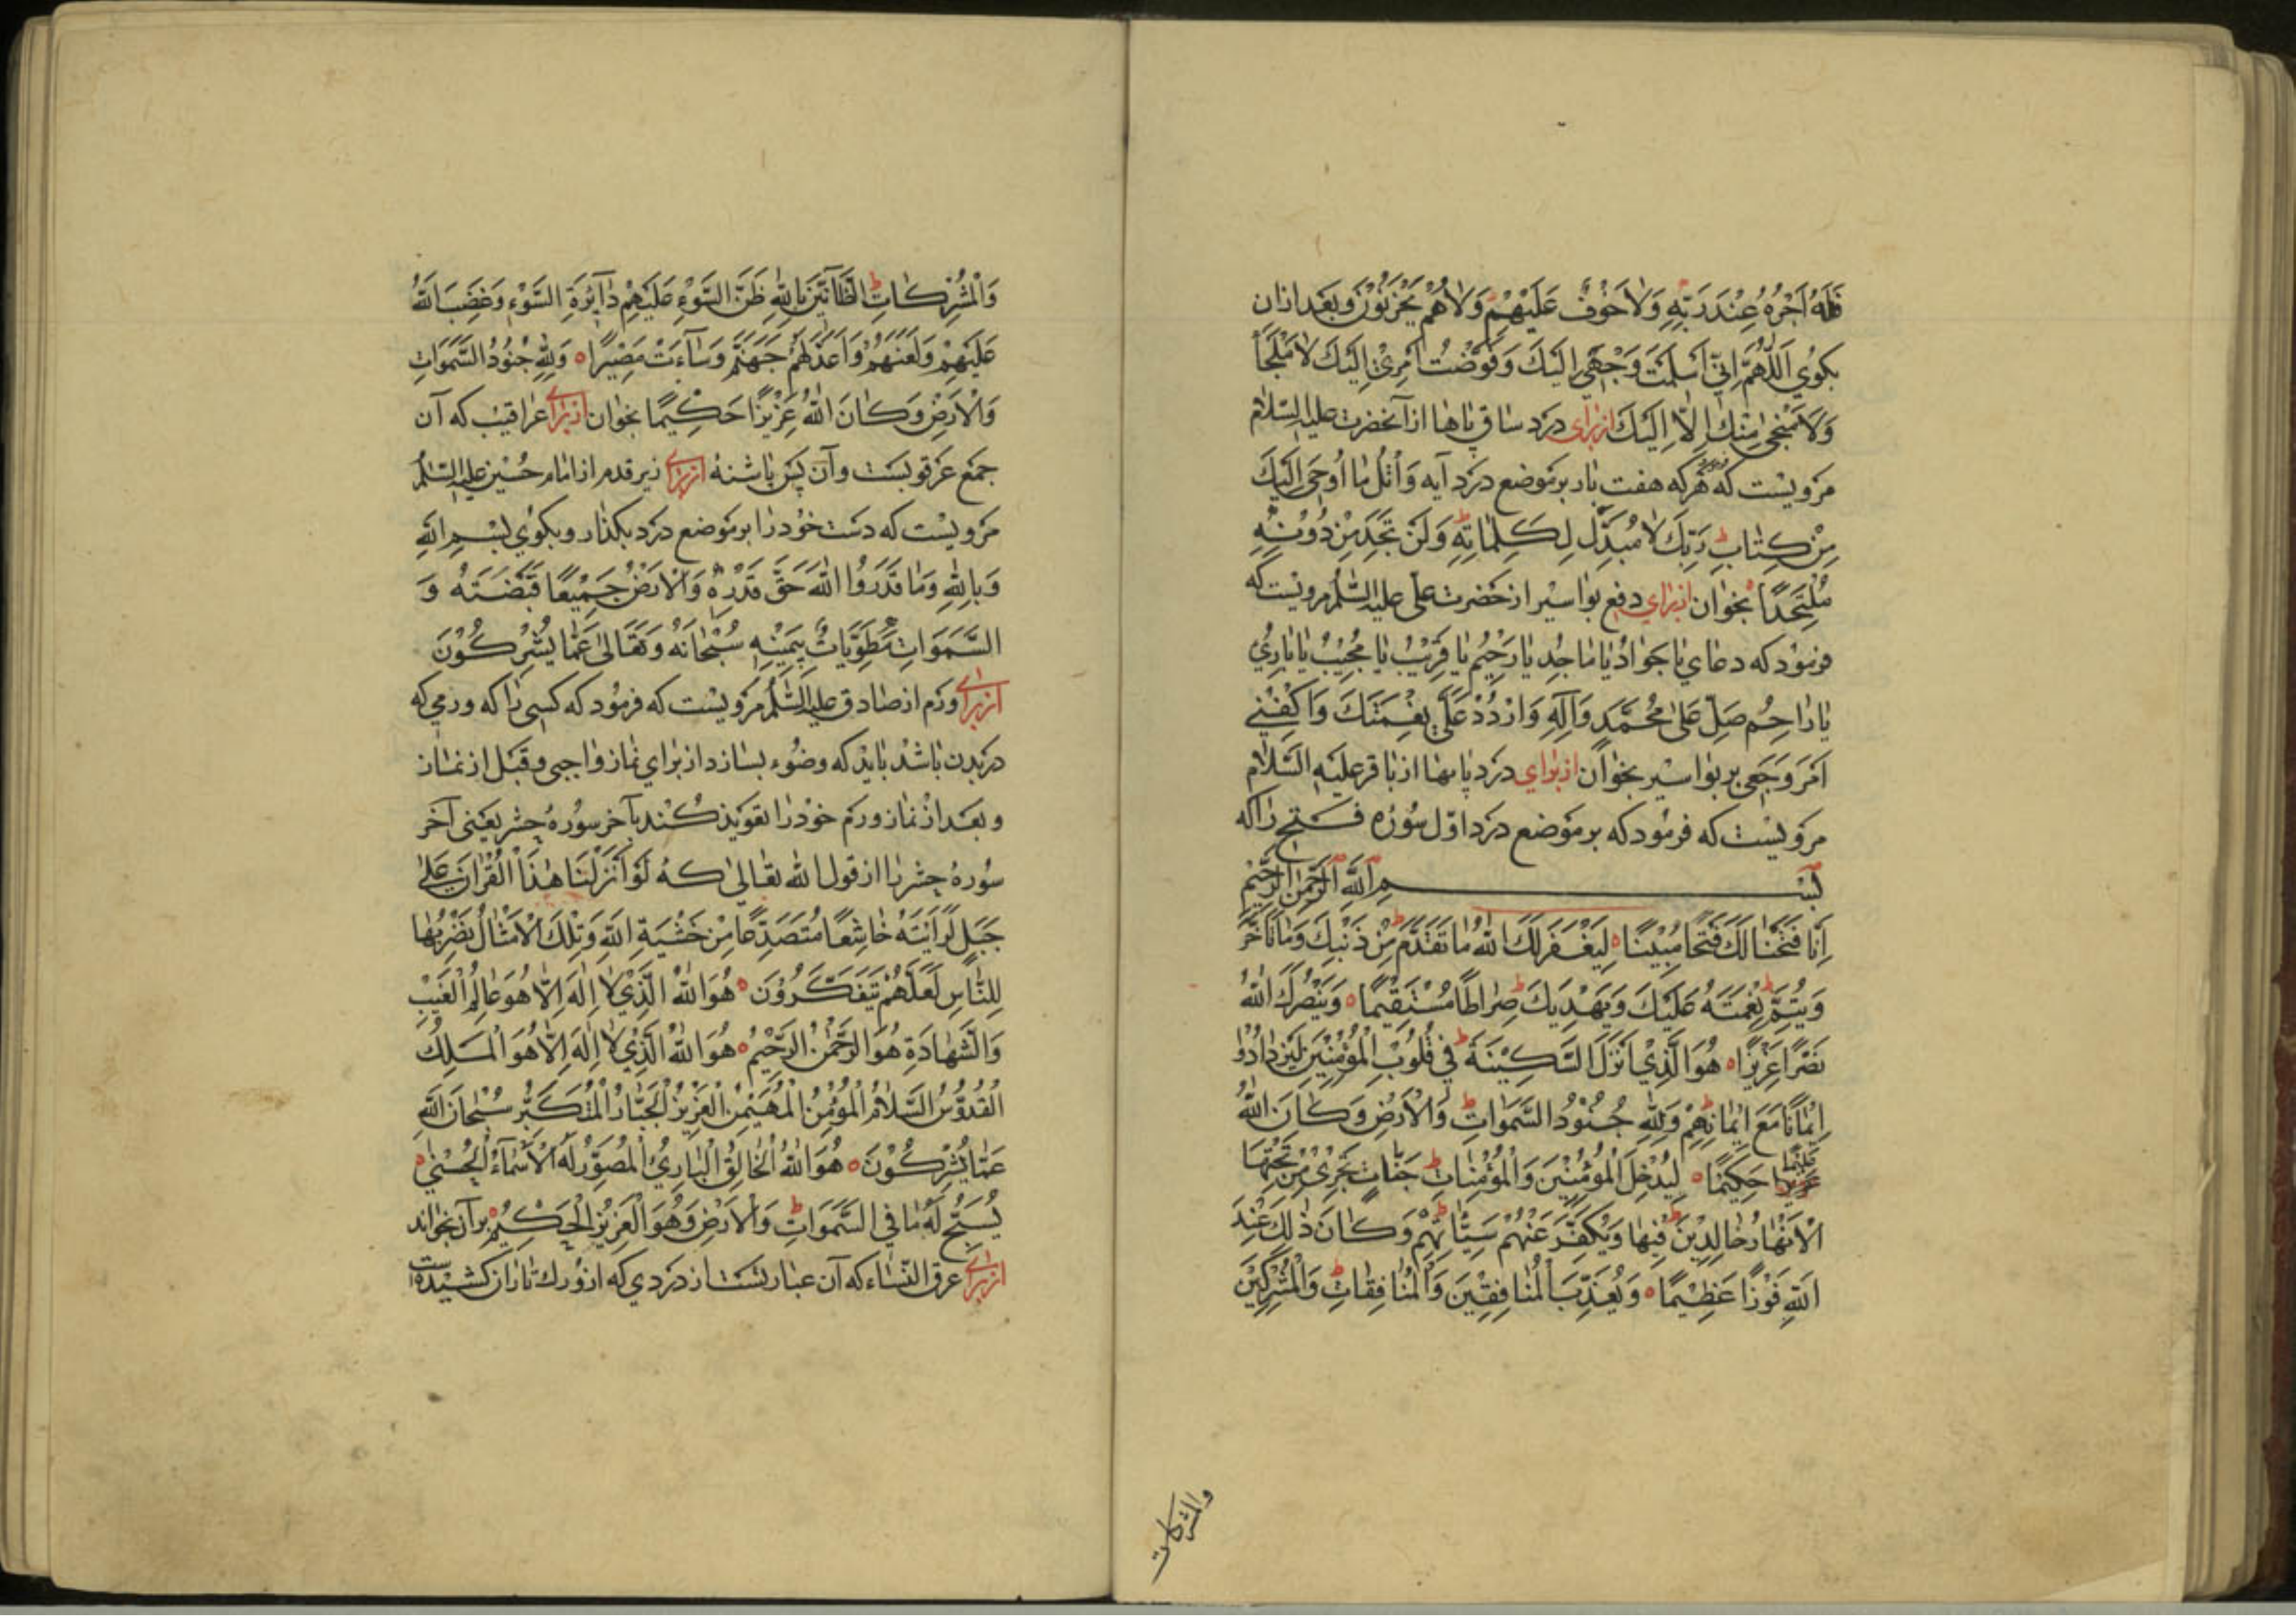 فَلَهُ اَجْرُهُ عِنْدَ رَبِّهِ وَلَا خَوْفٌ عَلَيْهِمْ وَلَا هُمْ يَحْزَنُوْنَ وبعد ازان
بكوُي اَللّٰهُمَّ اِنِّي اَسْلَمْتُ وَجْهِي اِلَيْكَ وَفَوَّضْتُ اَمْرِيْ اِلَيْكَ لَا مَلْجَأَ
وَلَا مَنْجٰى مِنْكَ اِلَّا اِلَيْكَ ازبراى درد ساق پاها از آنحضرت عليه السّلام
مرويست كه هركه هفت بار بر موضع درد آيه وَاتْلُ مَا اُوحِيَ اِلَيْكَ
مِنْ كِتَابِ رَبِّكَ لَا مُبَدِّلَ لِكَلِمَاتِهِ وَلَنْ تَجِدَ مِنْ دُونِهِ
مُلْتَحَدًا بخوان ازبراي دفع بواسير از حضرت علي عليه السّلم مرويست كه
فرمود كه دعاي يا جَوَادُ يا مَاجِدُ يا رَحِيْمُ يا قَرِيْبُ يا مُجِيْبُ يا بَارِئُ
يا رَاحِمُ صَلِّ عَلٰى مُحَمَّدٍ وَآلِهِ وَارْدُدْ عَلَيَّ نِعْمَتَكَ وَاكْفِنِي
اَمْرَ وَجَعِي بر بواسير بخوان ازبراي درد پايها از باقر عليه السّلام
مرويست كه فرمود كه بر موضع درد اوّل سُوْرَه فتح را كه
بسم الله الرحمن الرحيم
اِنَّا فَتَحْنَا لَكَ فَتْحًا مُبِيْنًا لِيَغْفِرَ لَكَ اللهُ مَا تَقَدَّمَ مِنْ ذَنْبِكَ وَمَا تَاَخَّرَ
وَيُتِمَّ نِعْمَتَهُ عَلَيْكَ وَيَهْدِيَكَ صِرَاطًا مُسْتَقِيْمًا وَيَنْصُرَكَ اللهُ
نَصْرًا عَزِيْزًا هُوَ الَّذِيْ اَنْزَلَ السَّكِيْنَةَ فِي قُلُوْبِ الْمُؤْمِنِيْنَ لِيَزْدَادُوْا
اِيْمَانًا مَعَ اِيْمَانِهِمْ وَلِلّٰهِ جُنُوْدُ السَّمٰوَاتِ وَالْاَرْضِ وَكَانَ اللهُ
عَلِيْمًا حَكِيْمًا لِيُدْخِلَ الْمُؤْمِنِيْنَ وَالْمُؤْمِنَاتِ جَنَّاتٍ تَجْرِيْ مِنْ تَحْتِهَا
الْاَنْهَارُ خَالِدِيْنَ فِيْهَا وَيُكَفِّرَ عَنْهُمْ سَيِّئَاتِهِمْ وَكَانَ ذٰلِكَ عِنْدَ
اللهِ فَوْزًا عَظِيْمًا وَيُعَذِّبَ الْمُنَافِقِيْنَ وَالْمُنَافِقَاتِ وَالْمُشْرِكِيْنَ
والمشركات
وَالْمُشْرِكَاتِ الظَّانِّيْنَ بِاللهِ ظَنَّ السَّوْءِ عَلَيْهِمْ دَآئِرَةُ السَّوْءِ وَغَضِبَ اللهُ
عَلَيْهِمْ وَلَعَنَهُمْ وَاَعَدَّ لَهُمْ جَهَنَّمَ وَسَآءَتْ مَصِيْرًا وَلِلّٰهِ جُنُوْدُ السَّمٰوَاتِ
وَالْاَرْضِ وَكَانَ اللهُ عَزِيْزًا حَكِيْمًا بخوان ازبراى عراقيب كه آن
جمع عرقوبست وآن پس پاشنه ازبراى زير قدم از امام حُسَيْن عليه السّلم
مرويست كه دست خود را بر موضع درد بكذار وبكوُي بِسْمِ اللهِ
وَبِاللهِ وَمَا قَدَرُوا اللهَ حَقَّ قَدْرِهِ وَالْاَرْضُ جَمِيْعًا قَبْضَتُهُ وَ
السَّمٰوَاتُ مَطْوِيَّاتٌ بِيَمِيْنِهِ سُبْحَانَهُ وَتَعَالٰى عَمَّا يُشْرِكُوْنَ
ازبراى ورم از صادق عليه السّلم مرويست كه فرمود كه كسى را كه ورمي كه
در بدن باشد بايد كه وضُوء بسازد از براي نماز واجبى وقبل از نماز
وبعد از نماز ورم خود را تعويذ كند بآخر سُورهٔ حشر يعنى آخر
سُورهٔ حشر را از قول الله تعالى كه لَوْ اَنْزَلْنَا هٰذَا الْقُرْاٰنَ عَلٰى
جَبَلٍ لَرَاَيْتَهُ خَاشِعًا مُتَصَدِّعًا مِنْ خَشْيَةِ اللهِ وَتِلْكَ الْاَمْثَالُ نَضْرِبُهَا
لِلنَّاسِ لَعَلَّهُمْ يَتَفَكَّرُوْنَ هُوَ اللهُ الَّذِيْ لَا اِلٰهَ اِلَّا هُوَ عَالِمُ الْغَيْبِ
وَالشَّهَادَةِ هُوَ الرَّحْمٰنُ الرَّحِيْمُ هُوَ اللهُ الَّذِيْ لَا اِلٰهَ اِلَّا هُوَ الْمَلِكُ
الْقُدُّوْسُ السَّلَامُ الْمُؤْمِنُ الْمُهَيْمِنُ الْعَزِيْزُ الْجَبَّارُ الْمُتَكَبِّرُ سُبْحَانَ اللهِ
عَمَّا يُشْرِكُوْنَ هُوَ اللهُ الْخَالِقُ الْبَارِئُ الْمُصَوِّرُ لَهُ الْاَسْمَآءُ الْحُسْنٰى
يُسَبِّحُ لَهُ مَا فِي السَّمٰوَاتِ وَالْاَرْضِ وَهُوَ الْعَزِيْزُ الْحَكِيْمُ بر آن بخواند
ازبراى عرق النّساء كه آن عبارتست از دردي كه از وُرك تا ران كشيده است